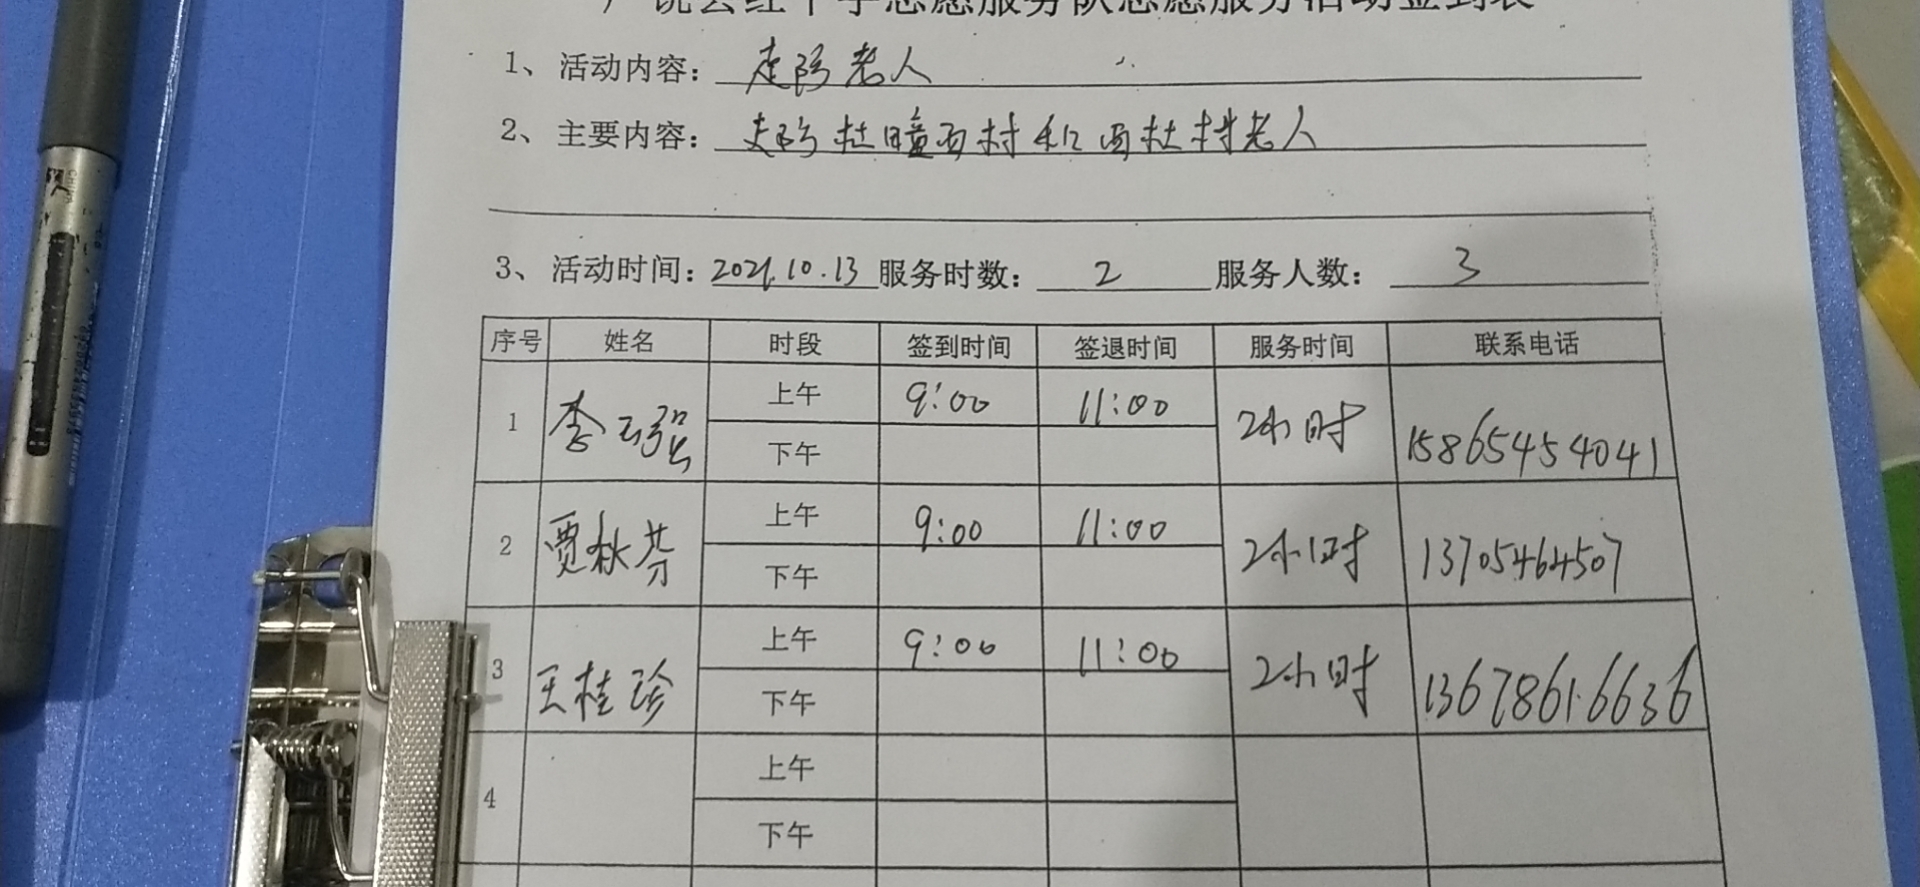 广饶县红十字志愿服务队志愿服务活动签到表
1、活动内容：走访老人
2、主要内容：走访杜疃西村和西杜村老人
3、活动时间：2021.10.13 服务时数：2 服务人数：3
序号 姓名 时段 签到时间 签退时间 服务时间 联系电话
1 李云强 上午 9:00 11:00 2小时 15865454041
下午
2 贾秋芬 上午 9:00 11:00 2小时 13705464507
下午
3 王桂珍 上午 9:00 11:00 2小时 13678616636
下午
4 上午
下午